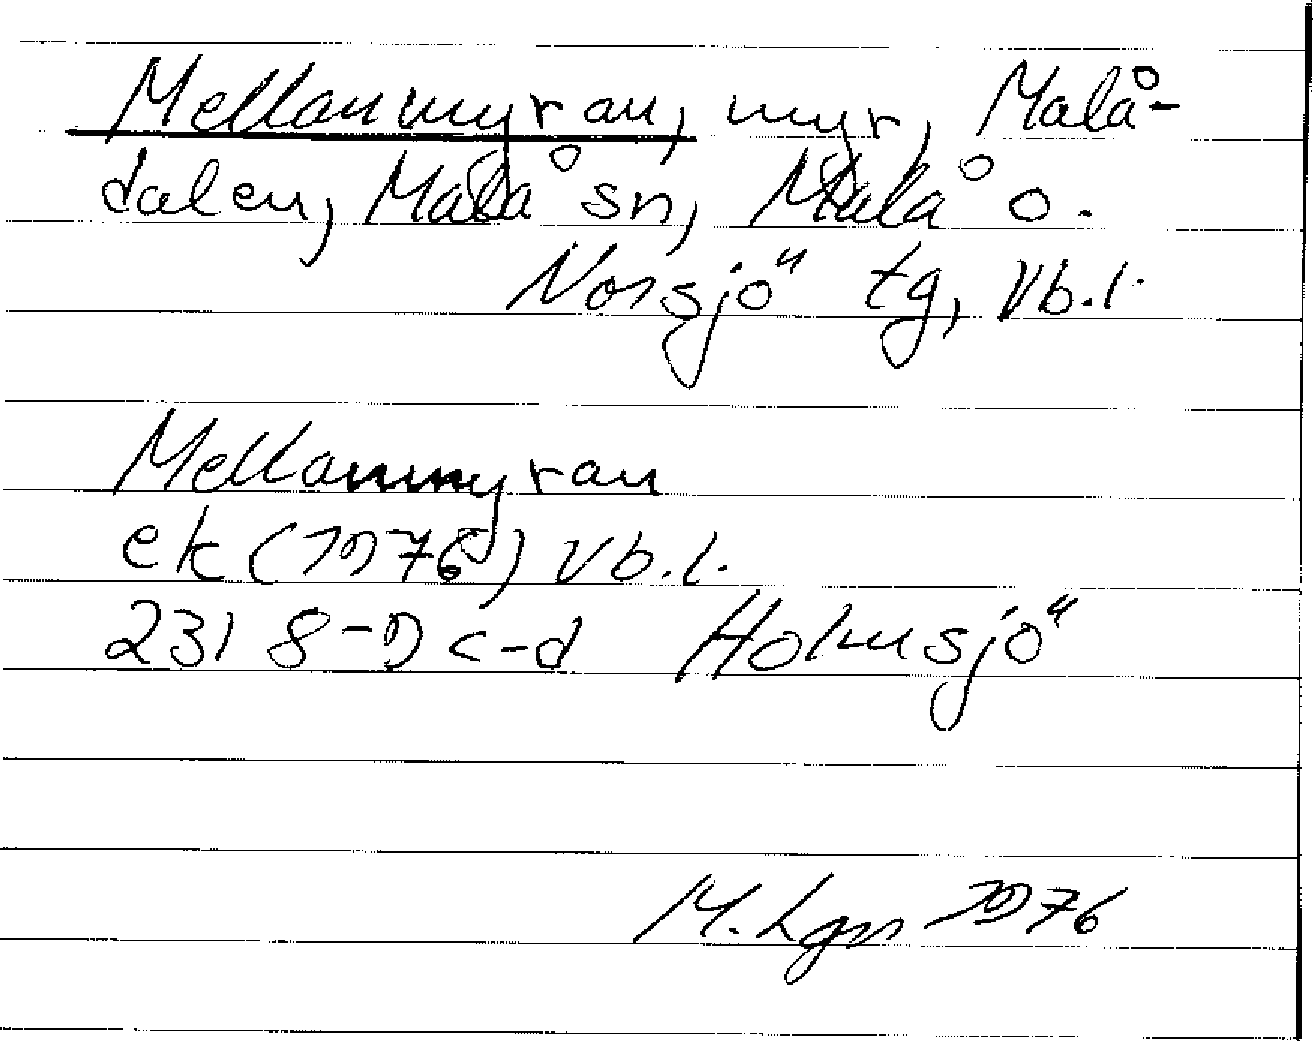 Mellanmyran, myr, Malå-
dalen, Malå sn, Malå o.
Norsjö tg, Vb.l.
Mellanmyran
ek (1976) Vb.l.
231 8-9 c-d Holmsjö
M. Lgn 1976